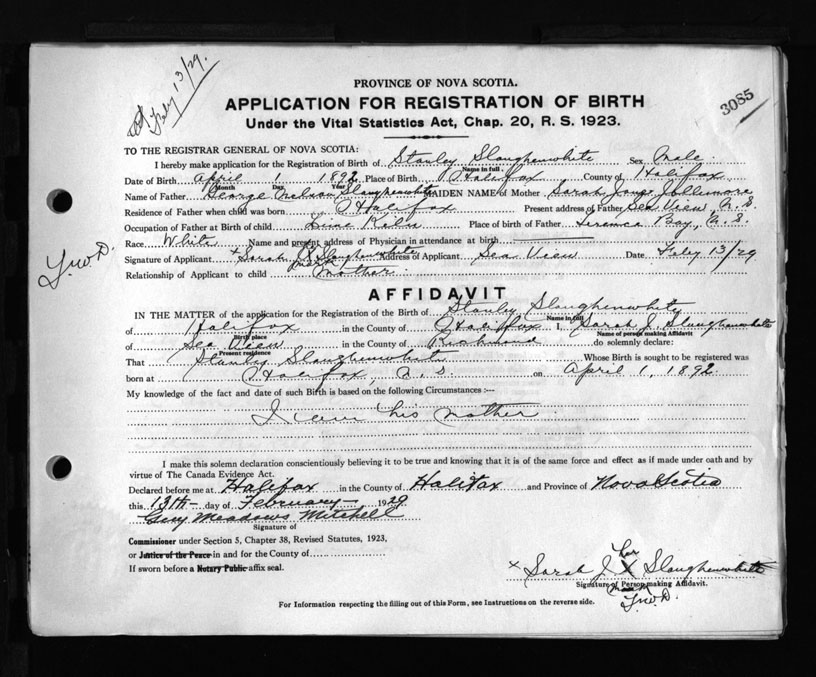 Feby 13/29.
3085
PROVINCE OF NOVA SCOTIA.
APPLICATION FOR REGISTRATION OF BIRTH
Under the Vital Statistics Act, Chap. 20, R. S. 1923.
TO THE REGISTRAR GENERAL OF NOVA SCOTIA:
I hereby make application for the Registration of Birth of Stanley Slaughenwhite Sex Male
Name in full.
Date of Birth April 1 1892 Place of Birth Halifax County of Halifax
Month Day Year
Name of Father George Nelson Slaughenwhite MAIDEN NAME of Mother Sarah Jane Jollimore
Residence of Father when child was born Halifax Present address of Father Sea View, N. S
Occupation of Father at Birth of child Lime Kiln Place of birth of Father Terence Bay, N. S.
Race White Name and present address of Physician in attendance at birth
Signature of Applicant + Sarah J. X Slaughenwhite Address of Applicant Sea View Date Feby 13/29
mark
Relationship of Applicant to child Mother
F.W.D.
AFFIDAVIT
IN THE MATTER of the application for the Registration of Birth of Stanley Slaughenwhite
Name in full
of Halifax in the County of Halifax I, Sarah J. Slaughenwhite
Birth place Name of person making Affidavit
of Sea View in the County of Richmond do solemnly declare:
Present residence
That Stanley Slaughenwhite Whose Birth is sought to be registered was
born at Halifax, N. S. on April 1, 1892.
My knowledge of the fact and date of such Birth is based on the following Circumstances :—
I am his mother
I make this solemn declaration conscientiously believing it to be true and knowing that it is of the same force and effect as if made under oath and by
virtue of The Canada Evidence Act.
Declared before me at Halifax in the County of Halifax and Province of Nova Scotia
this 13th day of February 1929
Guy Meadows Mitchell
Signature of
Commissioner under Section 5, Chapter 38, Revised Statutes, 1923,
or Justice of the Peace in and for the County of
If sworn before a Notary Public affix seal.
her
x Sarah J. X Slaughenwhite
Signature of Person making Affidavit.
mark
F.W.D.
For Information respecting the filling out of this Form, see Instructions on the reverse side.